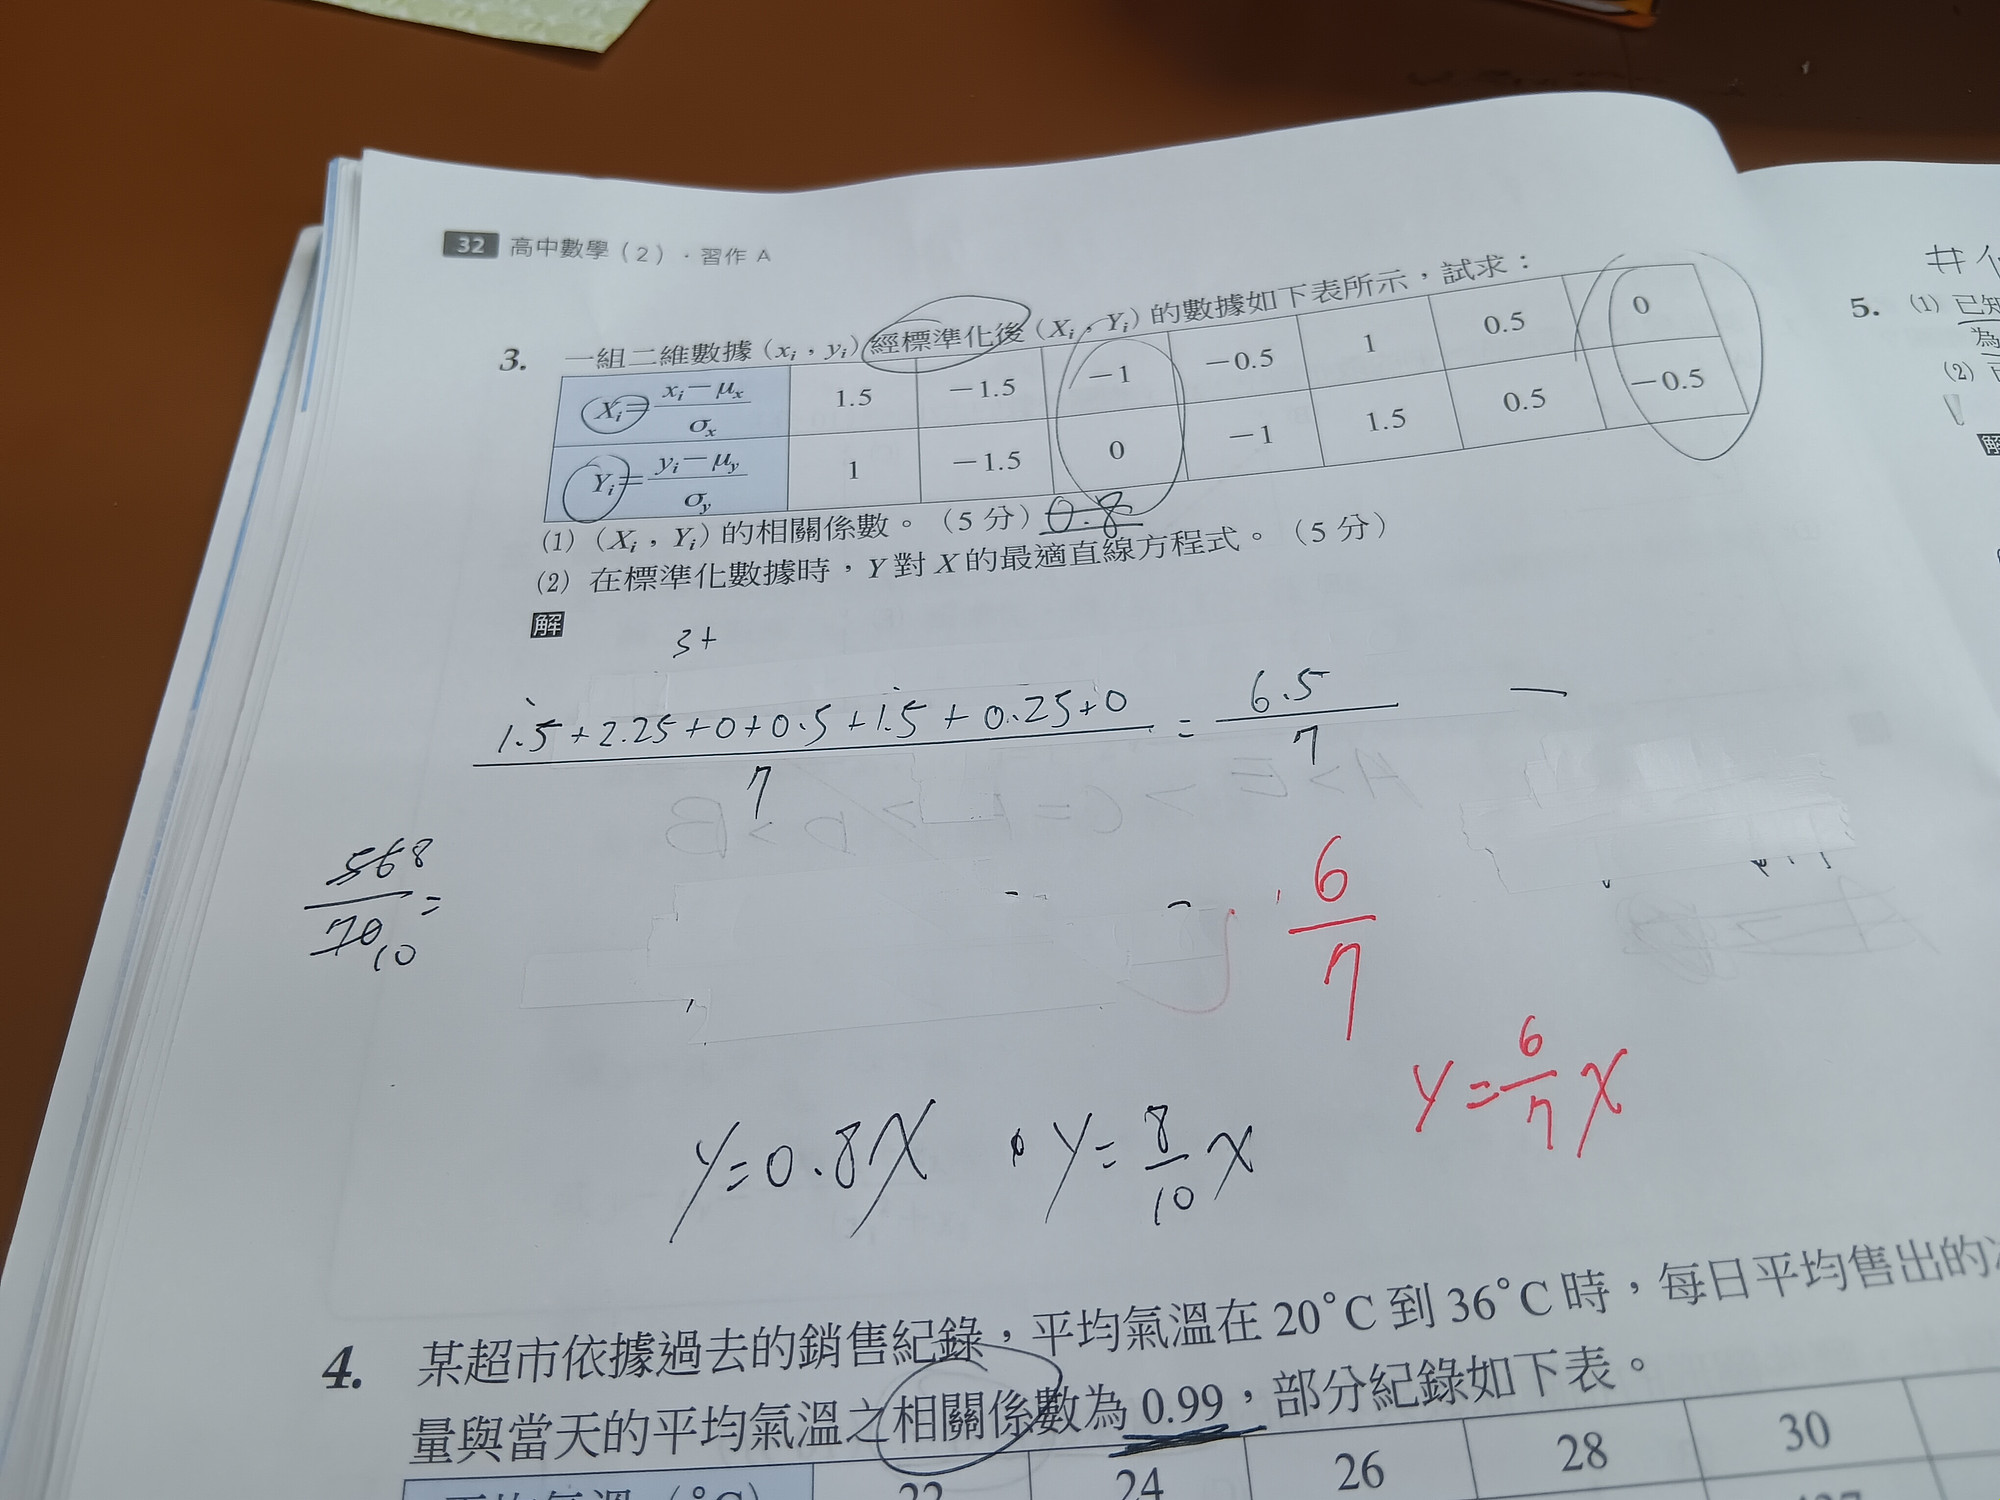 32 高中數學（2）．習作 A
3. 一組二維數據（xᵢ，yᵢ）經標準化後（Xᵢ，Yᵢ）的數據如下表所示，試求：
Xᵢ=(xᵢ−μₓ)/σₓ 1.5 −1.5 −1 −0.5 1 0.5 0
Yᵢ=(yᵢ−μy)/σy 1 −1.5 0 −1 1.5 0.5 −0.5
(1)（Xᵢ，Yᵢ）的相關係數。（5 分）0.8
(2) 在標準化數據時，Y 對 X 的最適直線方程式。（5 分）
解
3+
(1.5+2.25+0+0.5+1.5+0.25+0)/7 = 6.5/7
6/7
y=6/7 x
y=0.8x y=8/10 x
4. 某超市依據過去的銷售紀錄，平均氣溫在 20°C 到 36°C 時，每日平均售出的
量與當天的平均氣溫之相關係數為 0.99，部分紀錄如下表。
22 24 26 28 30
5. (1) 已知
為
(2)